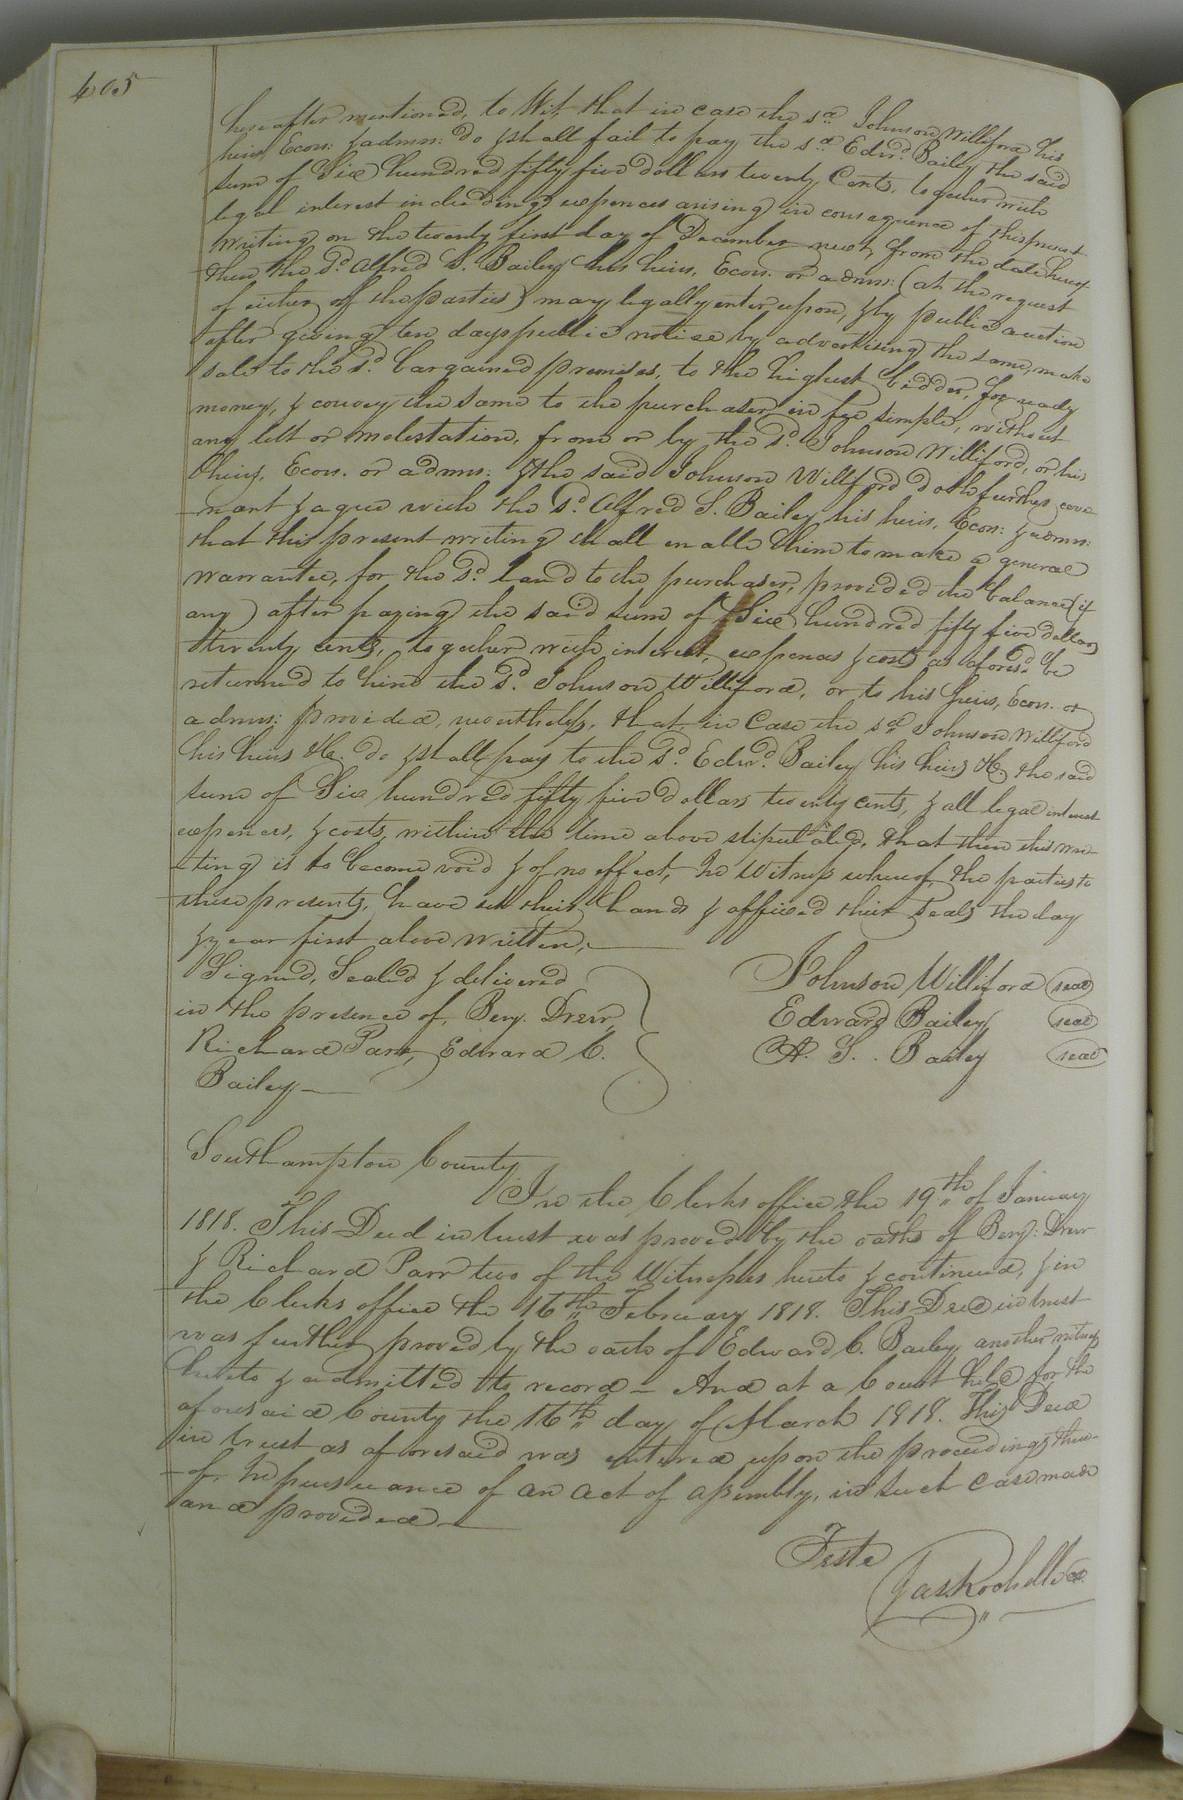 405
hereafter mentioned, to Wit, that in case the sd. Johnson Williford his
heirs Ecors: & admrs: do & shall fail to pay the sd. Edwd. Bailey the said
sum of Six hundred fifty five dollars twenty Cents, together with
legal interest including expences arising in consequence of this present
writing on the twenty first day of December next, from the date hereof
then the Sd. Alfred S. Bailey his heirs, Ecors. or admrs: (at the request
of either of the parties) may legally enter upon, & by public auction
after giving ten days public notice by advertising the same, make
sale to the sd. bargained premises, to the highest bidder, for ready
money, & convey the same to the purchaser in fee simple, without
any lett or molestation, from or by the sd. Johnson Williford, or his
heirs, Ecors. or admrs: & the said Johnson Williford doth further cove-
nant & agree with the sd. Alfred S. Bailey his heirs, Ecors: & admrs:
that this present writing shall enable him to make a general
warrantee, for the sd. land to the purchaser, provided the balance (if
any) after paying the said sum of Six hundred fifty five dollars
twenty cents, together with interest, expences & costs as aforesd. be
returned to him the sd. Johnson Williford, or to his heirs, Ecors. or
admrs: provided, nevertheless, that in Case the sd. Johnson Williford
his heirs &c. do & shall pay to the sd. Edwd. Bailey his heirs &c. the said
sum of Six hundred fifty five dollars twenty cents, & all legal interest
expences, & costs, within the time above stipulated, that then this wri-
ting is to become void & of no effect, In Witness whereof, the parties to
these presents, have set their hands & affixed their Seals the day
& year first above written,
Signed, Sealed & delivered
in the presence of, Benj. Drew,
Richard Parr, Edward C.
Bailey
Johnson Williford seal
Edward Bailey seal
A. S. Bailey seal
Southampton County
In the Clerks office the 19th of January
1818. This Deed in trust was proved by the oaths of Benj: Drew
& Richard Parr two of the Witnesses hereto & continued, & in
the Clerks office the 16th February 1818. This Deed in trust
was further proved by the oath of Edward C. Bailey another witness
hereto & admitted to record - And at a Court held for the
aforesaid County the 16th day of March 1818. This Deed
in trust as aforesaid was entered upon the proceedings there-
of. In pursuance of an act of assembly, in such case made
and provided
Teste
Jas Rochelle cc.